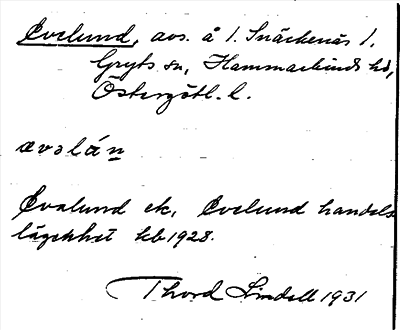 Evelund, avs. å 1. Snäckenäs 1.
Gryts sn, Hammarkinds hd,
Östergötl. l.
ævəlán
Evalund ek, Evelund handels
lägenhet kb 1928.
Thord Lindell 1931